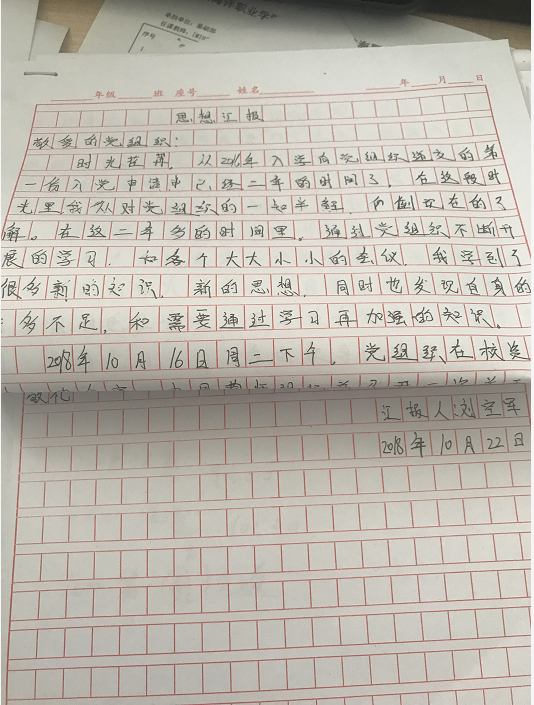 海洋职业学
单位:基础部
序号
年级 班 座号 姓名 年 月 日
思想汇报
敬爱的党组织:
时光荏苒,从2016年入学向党组织递交的第
一份入党申请书已经二年的时间了,在这段时
光里我从对党组织的一知半解,到现在的了
解。在这二年多的时间里,通过党组织不断开
展的学习,和各个大大小小的会议,我学到了
很多新的知识,新的思想,同时也发现自身的
多不足,和需要通过学习再加强的知识。
2018年10月16日周二下午,党组织在校党
汇报人:刘空军
2018年10月22日